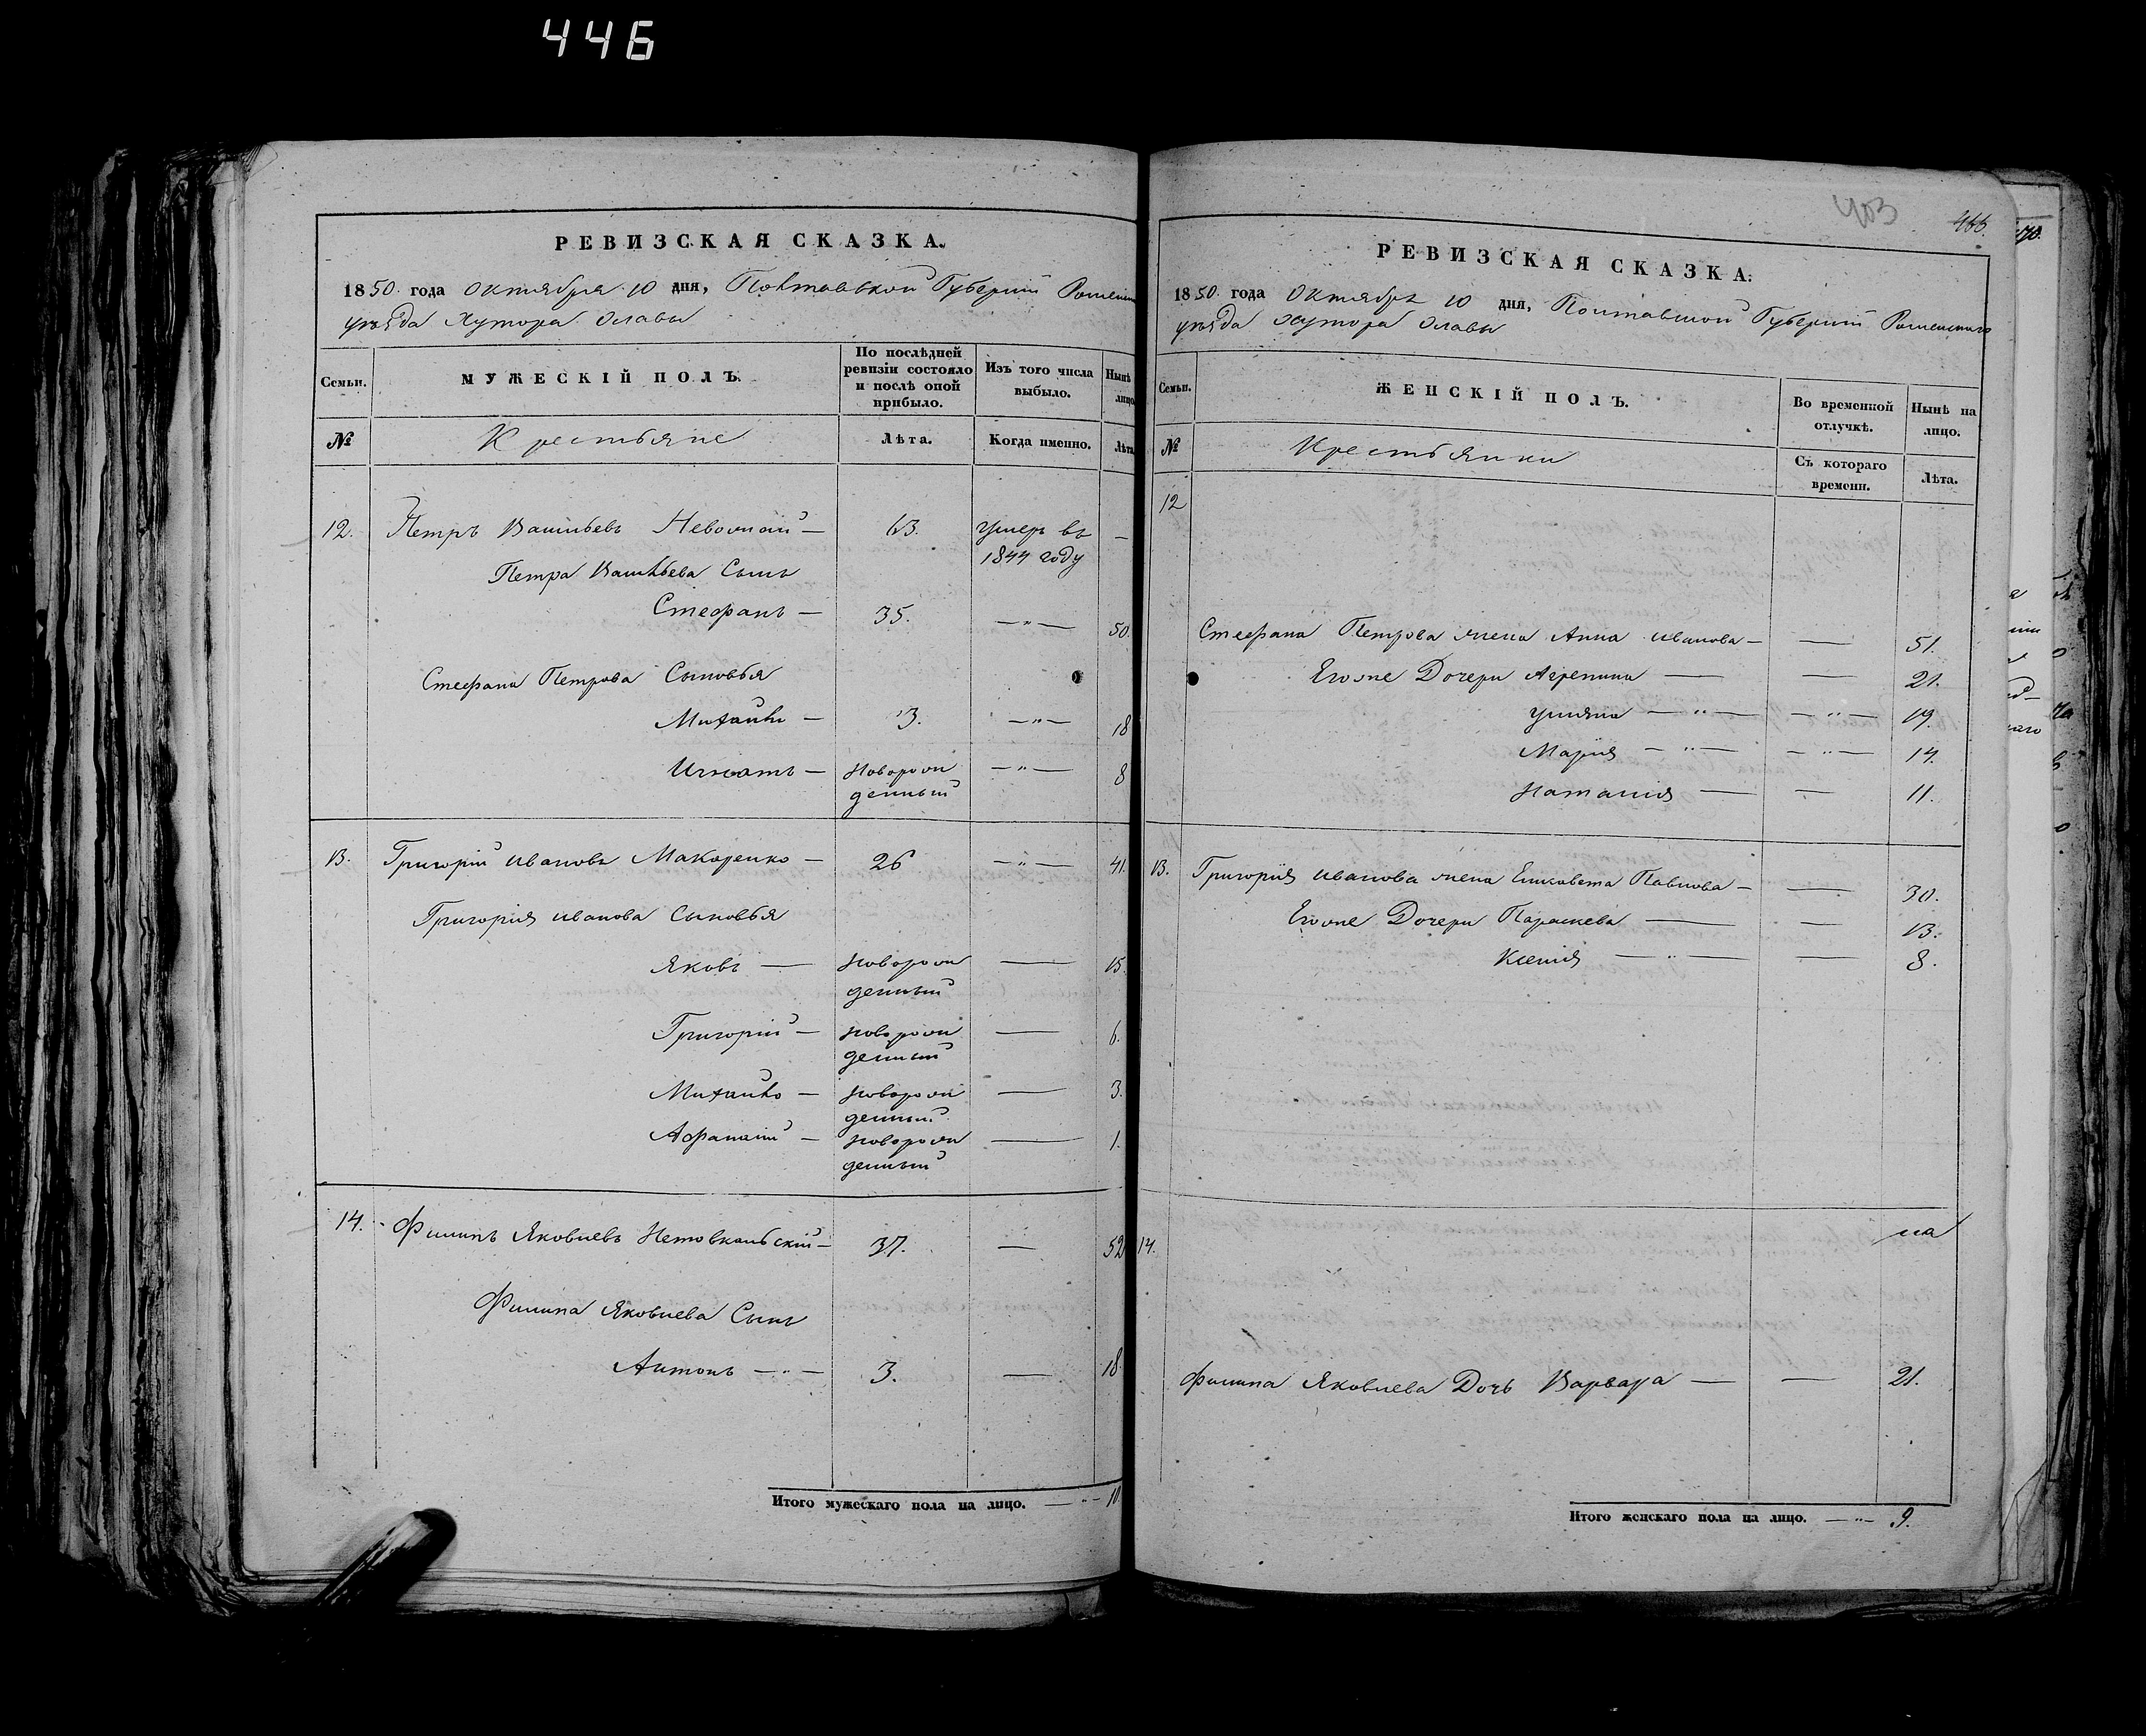 446
РЕВИЗСКАЯ СКАЗКА.
1850 года Октября 10 дня, Полтавской Губернии
уѣзда Хутора Славы
Семьи.
МУЖЕСКІЙ ПОЛЪ.
По послѣдней ревизіи состояло и послѣ оной прибыло.
Изъ того числа выбыло.
Нынѣ лицо
№
Крестьяне
Лѣта.
Когда именно.
Лѣта
12. Петръ Васильевъ — 63. умеръ въ —
1844 году
Петра Васильева Сынъ
Стефанъ — 35. — " — 50.
Стефана Петрова Сыновья
Михайло — 3. — " — 18
Игнатъ — новорож — " — 8
денный
13. Григорій Ивановъ Макаренко — 26 — " — 41.
Григорія Иванова Сыновья
Яковъ — новорож — 15.
денный
Григорій — новорож — 6.
денный
Михайло — новорож — 3.
денный
Афанасій — новорож — 1.
денный
14. Филипъ Яковлевъ — 37. — 52
Филипа Яковлева Сынъ
Антонъ — " — 3. — 18.
Итого мужескаго пола на лицо. — " — 10.
403
466.
РЕВИЗСКАЯ СКАЗКА.
1850 года Октября 10 дня, Полтавской Губерніи Роменскаго
уѣзда хутора Славы
Семьи.
ЖЕНСКІЙ ПОЛЪ.
Во временной отлучкѣ.
Нынѣ на лицо.
№
Крестьянки
Съ котораго времени.
Лѣта.
12
Стефана Петрова жена Анна Иванова — — 51.
Егоже Дочери Агрепина — — 21.
Ульяна — " — — " — 19.
Марія — " — — " — 14.
Наталія — — 11.
13. Григорія Иванова жена Елисавета Павлова — — 30.
Егоже Дочери Параскева — — 13.
Ксенія — " — — 8.
14.
Филипа Яковлева Дочь Варвара — — 21.
Итого женскаго пола на лицо. — " — 9.